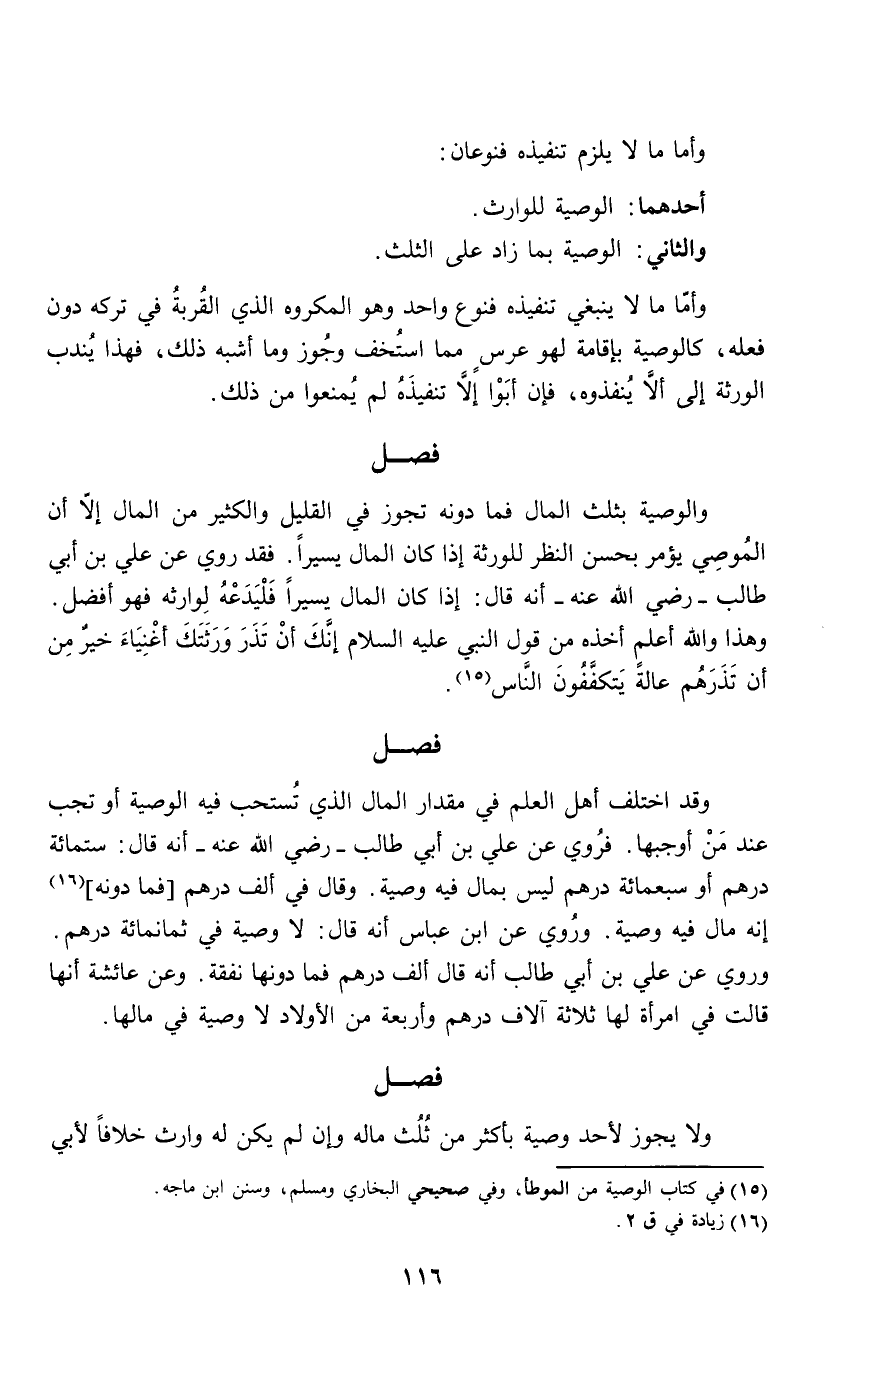 وأما ما لا يلزم تنفيذه فنوعان:
أحدهما: الوصية للوارث.
والثاني: الوصية بما زاد على الثلث.
وأمّا ما لا ينبغي تنفيذه فنوع واحد وهو المكروه الذي القُربةُ في تركه دون
فعله، كالوصية بإقامة لهو عرسٍ مما استُخف وجُوز وما أشبه ذلك، فهذا يُندب
الورثة إلى ألاَّ يُنفذوه، فإن أبَوْا إلاَّ تنفيذَهُ لم يُمنعوا من ذلك.
فصــل
والوصية بثلث المال فما دونه تجوز في القليل والكثير من المال إلاّ أن
المُوصِي يؤمر بحسن النظر للورثة إذا كان المال يسيراً. فقد روي عن علي بن أبي
طالب ـ رضي الله عنه ـ أنه قال: إذا كان المال يسيراً فَلْيَدَعْهُ لِوارثه فهو أفضل.
وهذا والله أعلم أخذه من قول النبي عليه السلام إنَّكَ أنْ تَذَرَ وَرَثَتَكَ أغْنِيَاءَ خيرٌ مِن
أن تَذَرَهُم عالةً يَتكفَّفُونَ النَّاس(١٥).
فصــل
وقد اختلف أهل العلم في مقدار المال الذي تُستحب فيه الوصية أو تجب
عند مَنْ أوجبها. فرُوي عن علي بن أبي طالب ـ رضي الله عنه ـ أنه قال: ستمائة
درهم أو سبعمائة درهم ليس بمال فيه وصية. وقال في ألف درهم [فما دونه](١٦)
إنه مال فيه وصية. ورُوي عن ابن عباس أنه قال: لا وصية في ثمانمائة درهم.
وروي عن علي بن أبي طالب أنه قال ألف درهم فما دونها نفقة. وعن عائشة أنها
قالت في امرأة لها ثلاثة آلاف درهم وأربعة من الأولاد لا وصية في مالها.
فصــل
ولا يجوز لأحد وصية بأكثر من ثُلُث ماله وإن لم يكن له وارث خلافاً لأبي
(١٥) في كتاب الوصية من الموطأ، وفي صحيحي البخاري ومسلم، وسنن ابن ماجه.
(١٦) زيادة في ق ٢.
١١٦